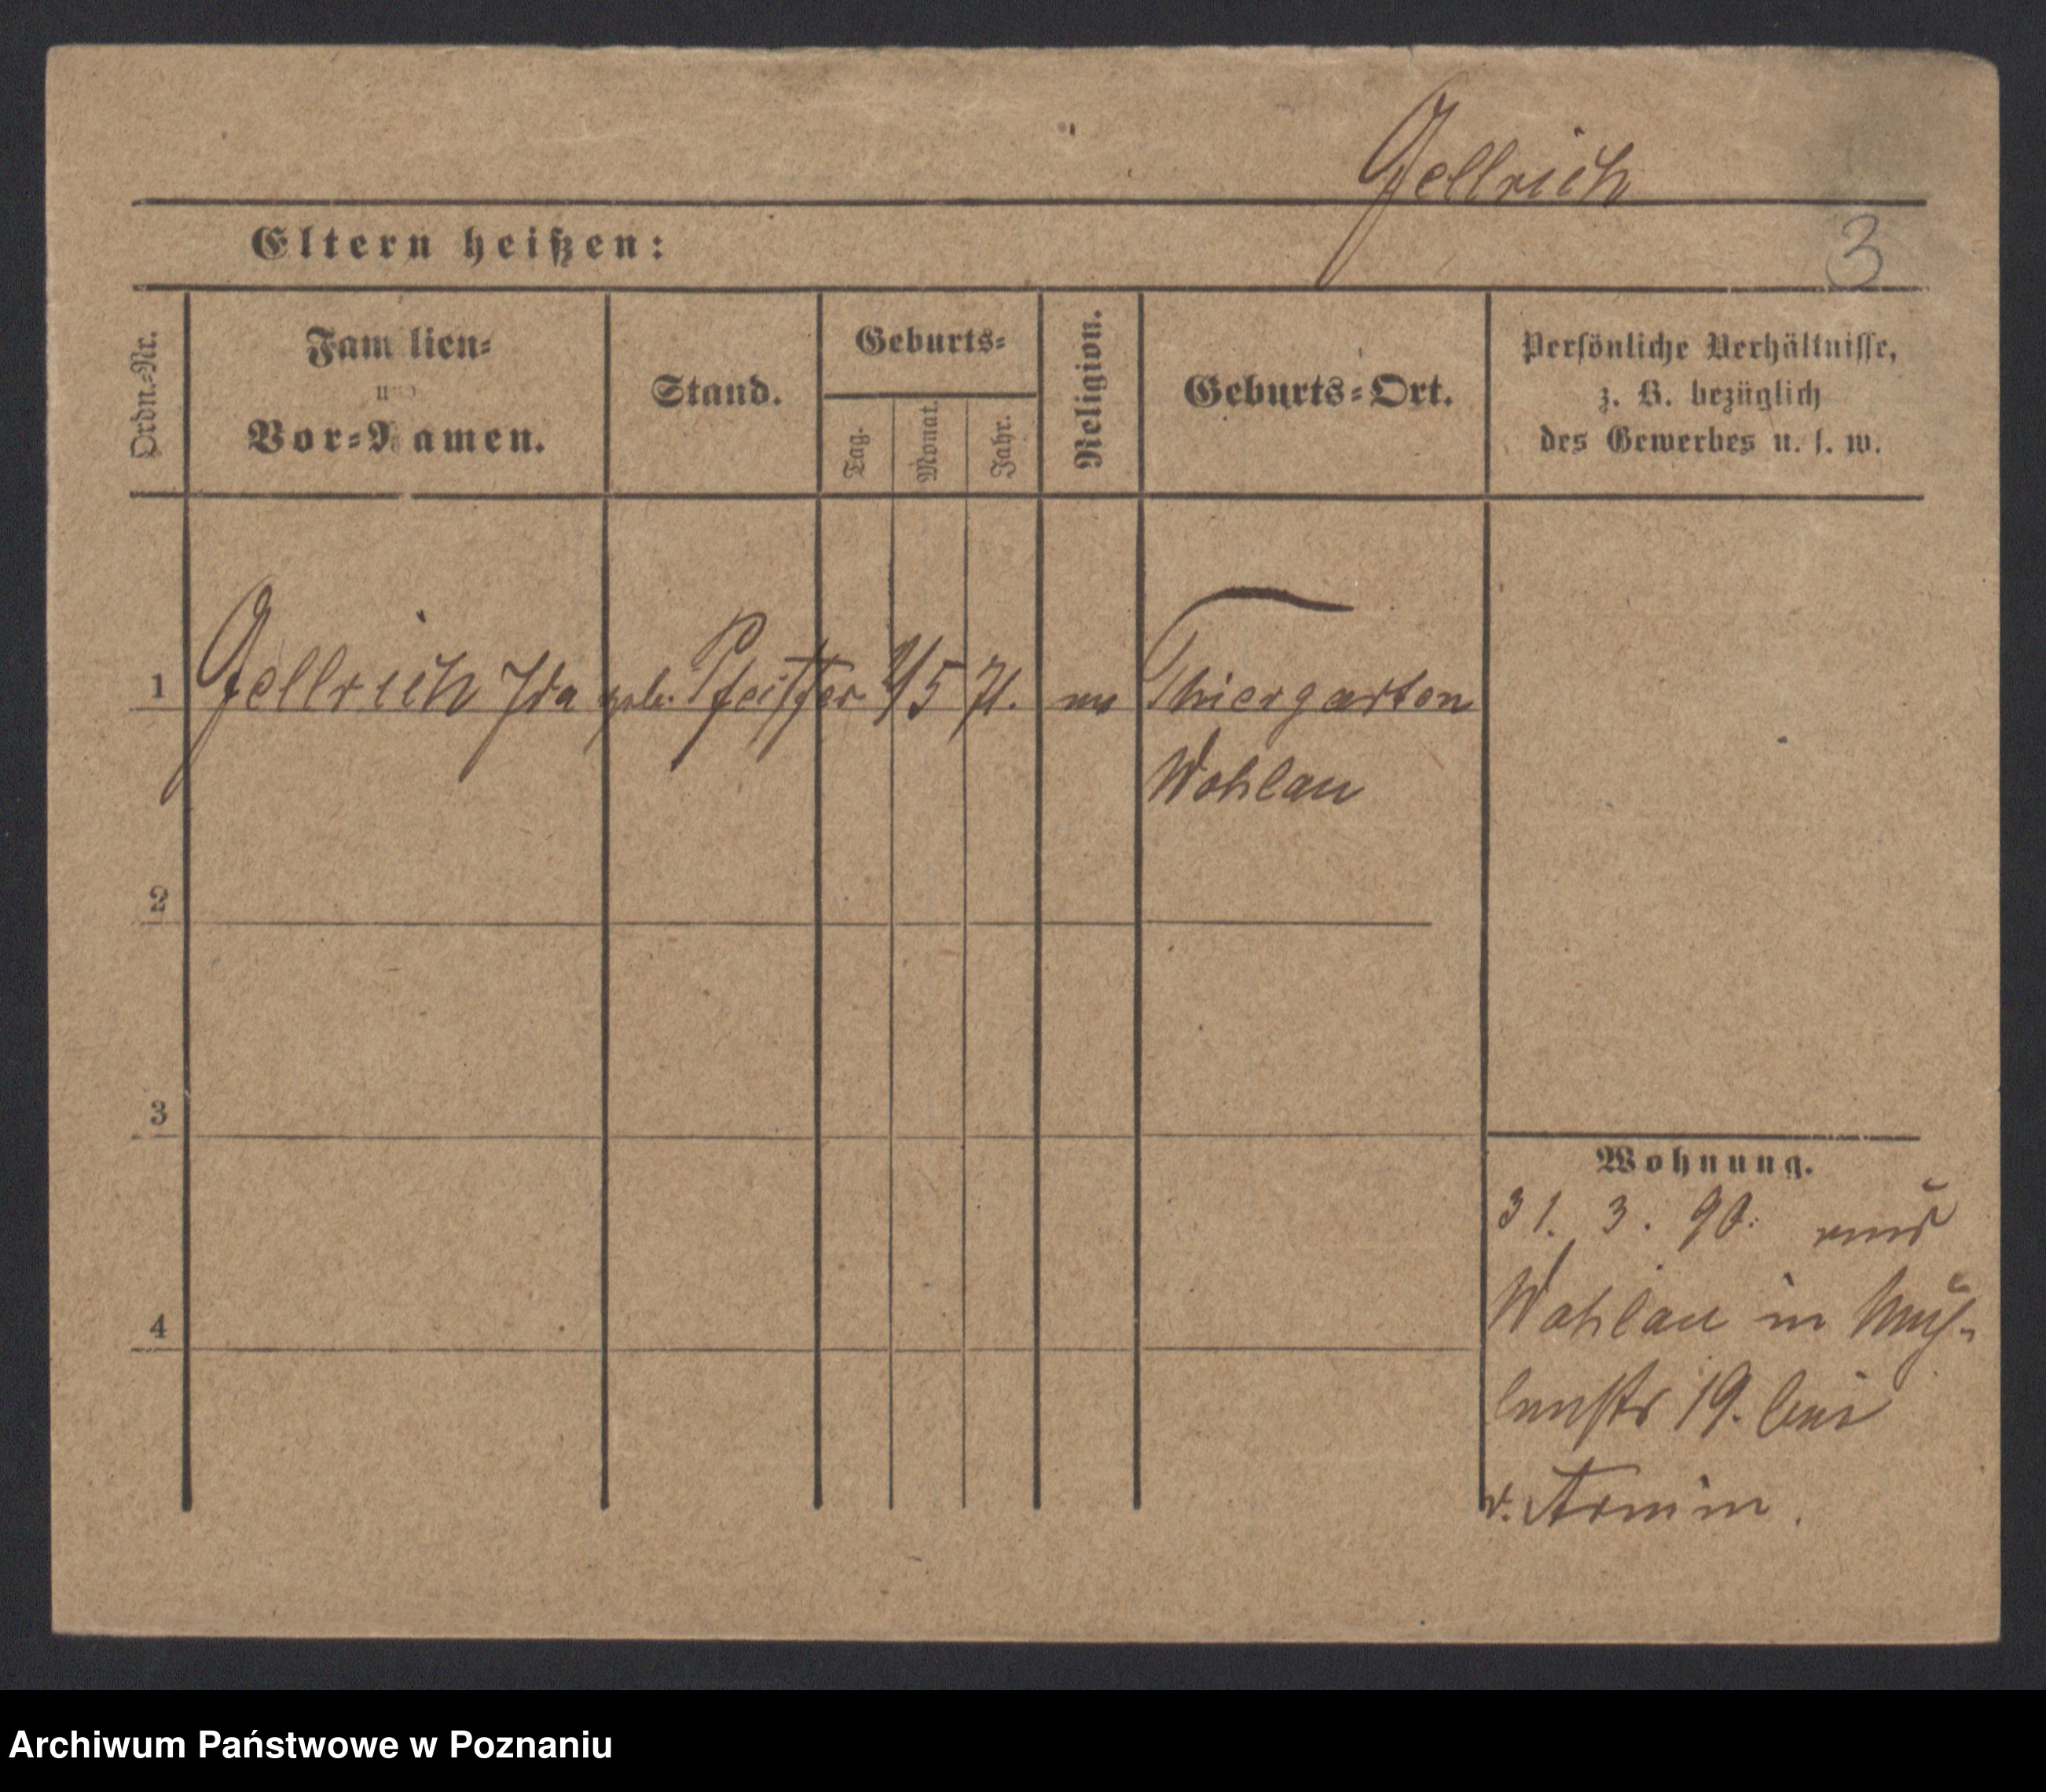 Jellrich
3
Eltern heißen:
Ordn.-Nr.
Familien-
und
Vor-Namen.
Stand.
Geburts-
Tag.
Monat.
Jahr.
Religion.
Geburts-Ort.
Persönliche Verhältnisse,
z. B. bezüglich
des Gewerbes u. s. w.
1 Jellrich Ida geb. Pfeiffer 5 71. ev Thiergarten
Wohlau
2
3
4
Wohnung.
31. 3. 90. aus
Wohlau in Müh-
lenstr 19. bei
v. Arnim.
Archiwum Państwowe w Poznaniu